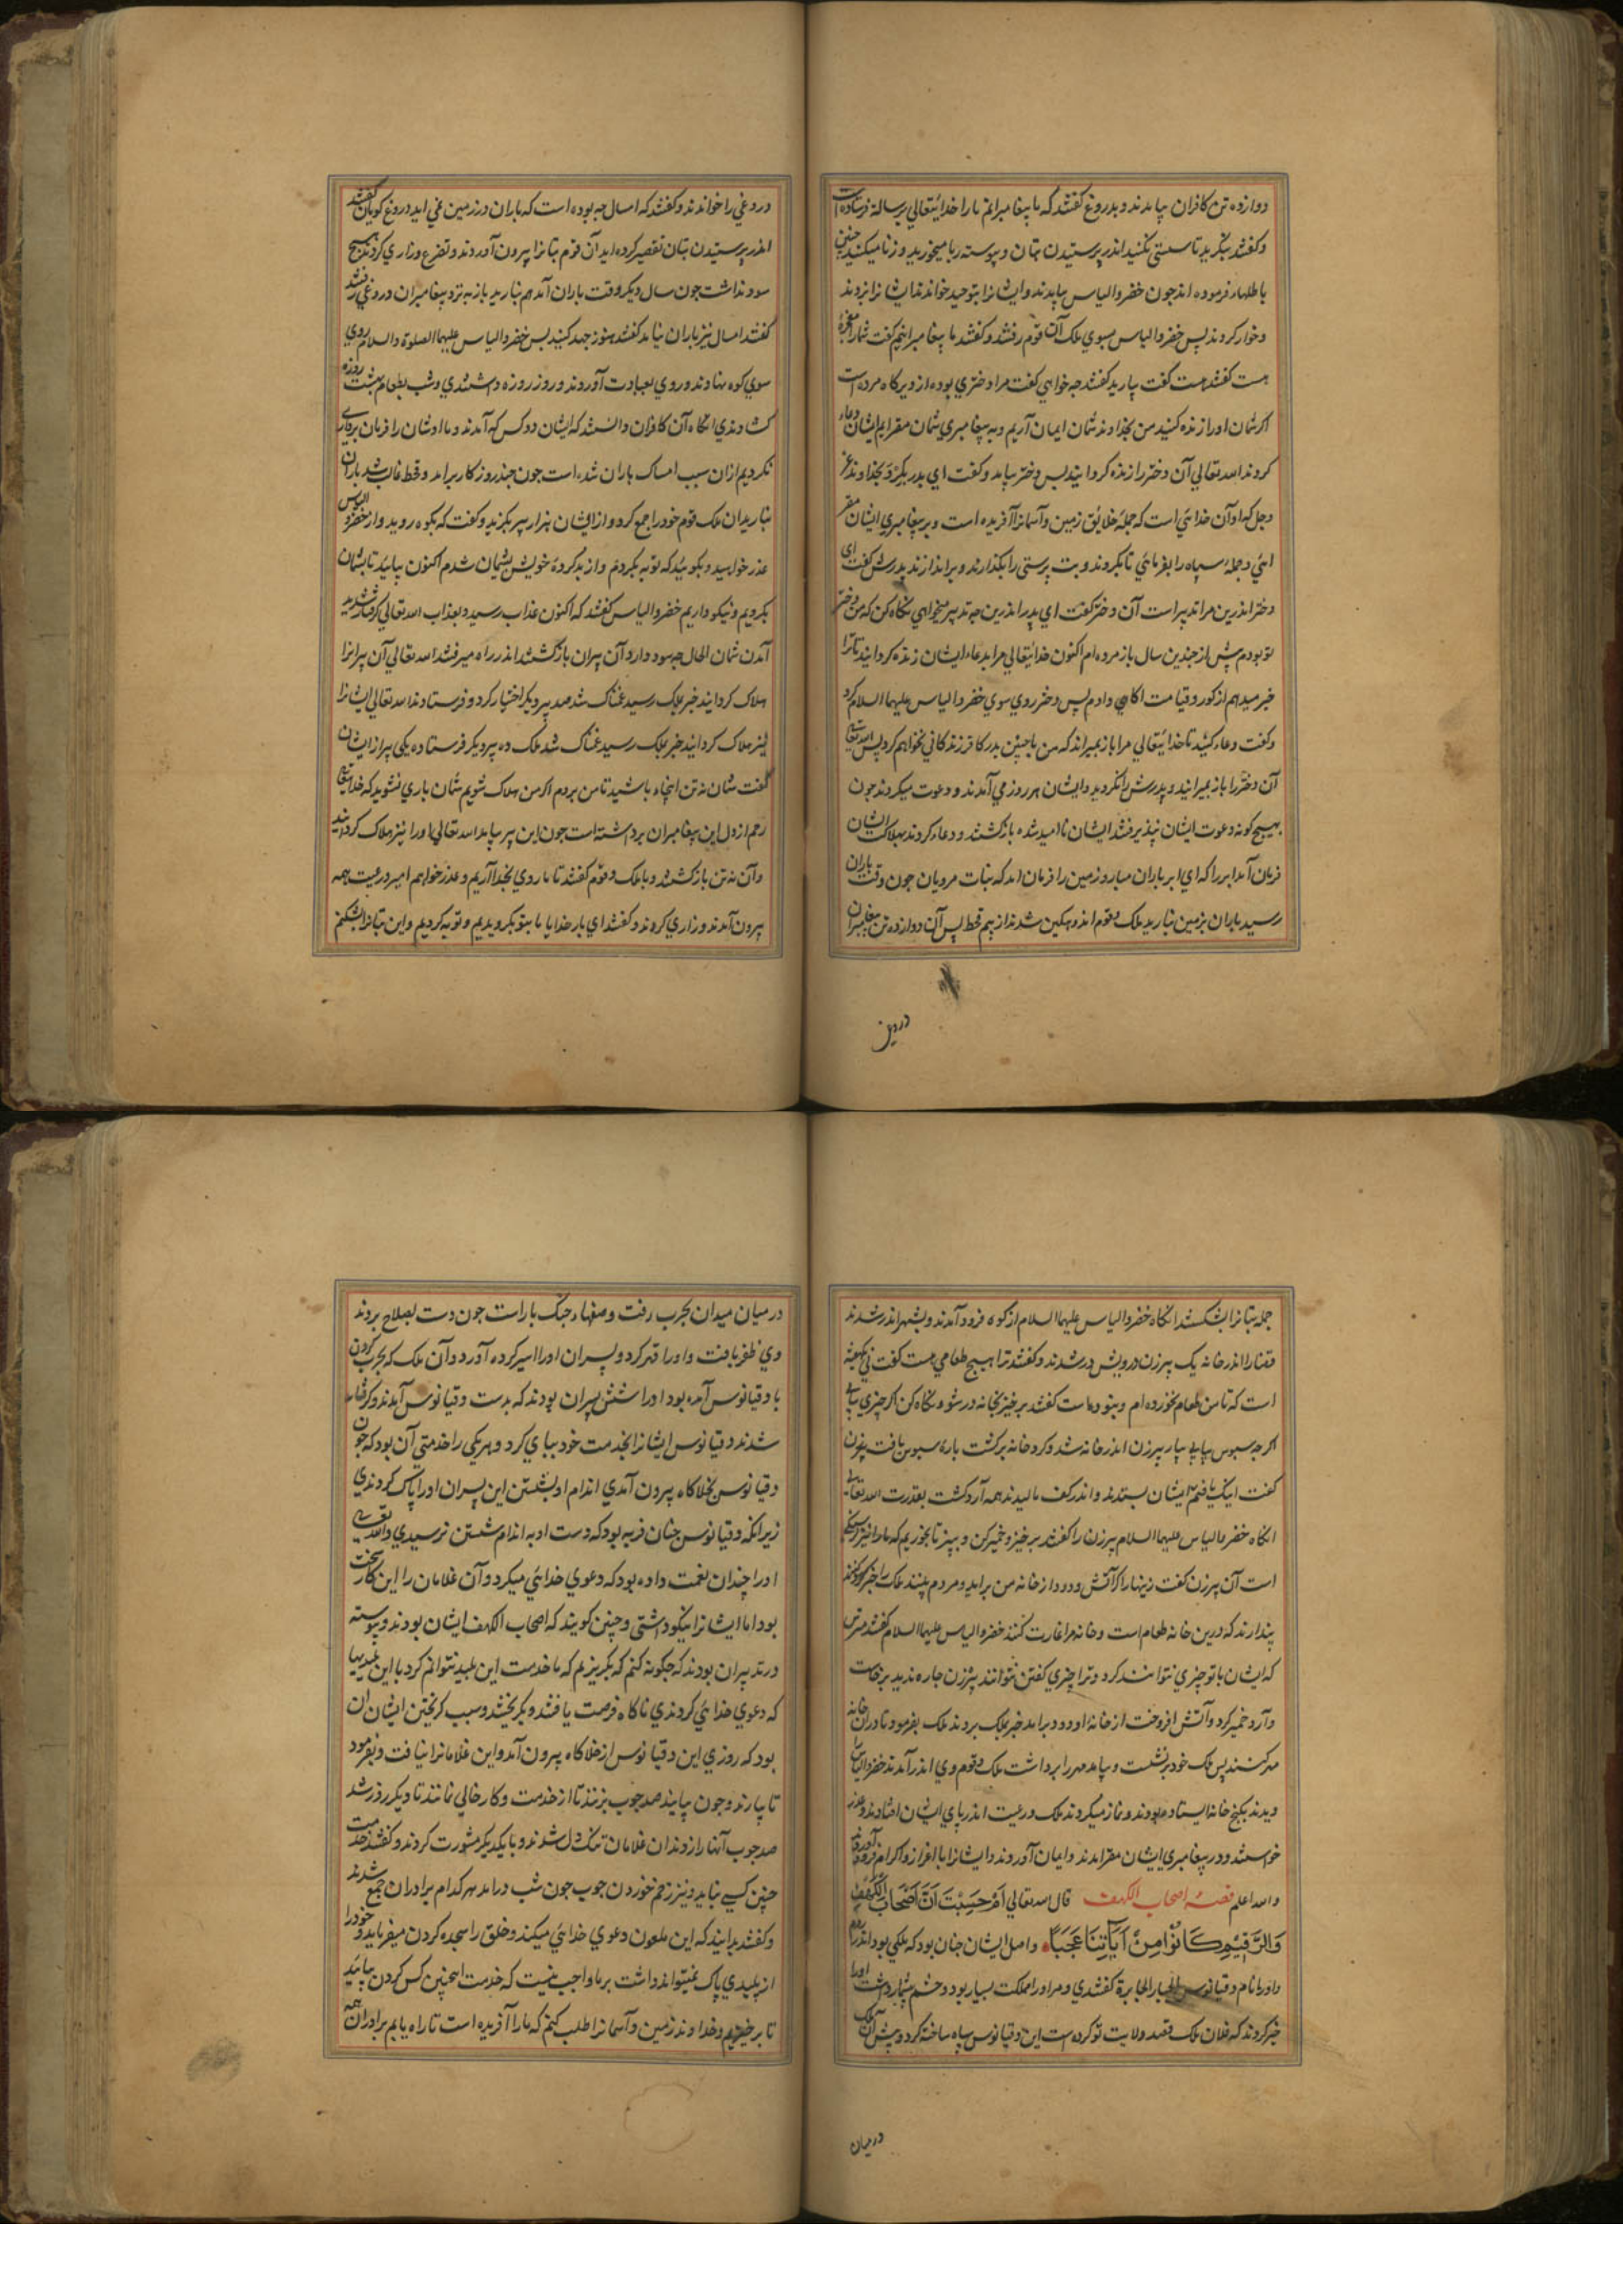 دوازده تن کافران بیامدند و بدروغ گفتند که ما پیغامبرانیم ما را خدایتعالی برسالة فرستاده است
و گفتند بنگرید تا سستی نکنید اندر پرستیدن بتان و پیوسته ربا میخورید و زنا میکنید چنین
باطلها، فرموده اند چون خضر والیاس بیامدند و ایشانرا بتوحید خواندند ایشانرا بزدند
و خوار کردند پس خضر و الیاس بسوی ملک آن قوم رفتند و گفتند ما پیغامبرانیم گفت شما را معجزهٔ
هست گفتند هست گفت بیارید گفتند چه خواهی گفت مرا دختری بوده از دیرگاه مرده است
اگر شمان او را زنده کنید من بخداوند شمان ایمان آریم و به پیغامبری شمان مقر ایم ایشان دعاء
کردند الله تعالی آن دختر را زنده گردانید پس دختر بیامد و گفت ای پدر بگرو بخداوند عز
و جل که او آن خدائی است که جملهٔ خلایق زمین و آسمانرا آفریده است و بر پیغامبری ایشان مقر
ائی و جملهٔ سپاه را بفرمائی تا بگروند و بت پرستی را بگذارند و براندازند پدرش گفت ای
دختر اندرین مرا تدبیر است آن دختر گفت ای پدر اندرین چه تدبیر میخواهی نگاه کن که من دختر
تو بودم پیش از چندین سال باز مرده ام اکنون خدایتعالی مرا بدعاء ایشان زنده گردانید تا ترا
خبر میدهم از گور و قیامت اگاهی دادم پس دختر روی سوی خضر و الیاس علیهما السلام کرد
و گفت دعاء کنید تا خدایتعالی مرا باز بمیراند که من با چنین پدر کافر زندگانی نخواهم کرد پس الله تعالی
آن دختر را باز بمیرانید و پدرش را نگروید و ایشان هر روز می آمدند و دعوت میکردند چون
بهیچ کونه دعوت ایشان نپذیرفتند ایشان ناامید شده بازگشتند و دعاء کردند بهلاک ایشان
فرمان آمد ابر را که ای ابر باران مبار و زمین را فرمان امد که نبات مرویان چون وقت باران
رسید باران بزمین نبارید ملک و قوم اندوهگین شدند از بیم قحط پس آن دوازده تن پیغامبران
درین
دروغی را خواندند و گفتند که امسال چه بوده است که باران در زمین نمی اید دروغ گویان گفتند
اندر پرستیدن بتان تقصیر کرده اید آن قوم بتانرا بیرون آوردند و تضرع و زاری کردند هیچ
سود نداشت چون سال دیگر وقت باران آمد هم نبارید باز به نزد پیغامبران دروغی رفتند
گفتند امسال نیز باران نیامد گفتند هنوز جهد کنید پس خضر و الیاس علیهما الصلوة والسلام روی
سوی کوه نهادند و روی بعبادت آوردند و روز روزه داشتندی و شب بطعام بهشت روزه
گشادندی انگاه آن کافران دانستند که ایشان دو کس که آمدند و ما اوشان را فرمان برداری
نکردیم ازان سبب امساک باران شده است چون چند روزگار برامد و قحط غالب شد باران
نبارید ان ملک قوم خود را جمع کرد و از ایشان هزار پیر بگزید و گفت که بکوه روید و از خضر و الیاس
عذر خواهید و بگوئید که توبه بکردم و از بد کردهٔ خویش پشیمان شدم اکنون بیائید تا بشمان
بگرویم و نیکو داریم خضر و الیاس گفتند که اکنون عذاب رسید و بعذاب الله تعالی گرفتار شدید
آمدن شمان الحال چه سود دارد آن پیران بازگشتند اندر راه میرفتند الله تعالی آن پیرانرا
هلاک گردانید خبر بملک رسید غمناک شد صد پیر دیگر اختیار کرد و فرستادند الله تعالی ایشانرا
نیز هلاک گردانید خبر بملک رسید غمناک شد ملک ده پیر دیگر فرستاده یکی پیر از ایشان
گفت شمان نه تن اینجاء باشید تا من بروم اگر من هلاک شویم شمان باری نشوید که خدایتعالی
رحم از دل این پیغامبران برداشته است چون این پیر بیامد الله تعالی او را نیز هلاک گردانید
و آن نه تن بازگشتند و با ملک و قوم گفتند تا ما روی بخدا آریم و عذر خواهم امیر و رعیت همه
بیرون آمدند و زاری کردند و گفتند ای بار خدایا ما بتو بگرویدیم و توبه کردیم و این بتانرا بشکنم
جمله بتانرا بشکستند انگاه خضر و الیاس علیهما السلام از کوه فرود آمدند و بشهر اندر شدند
قضا را اندر خانه یک پیرزن درویش درشدند و گفتند ترا هیچ طعامی هست گفت نی یکهفته
است که تا من طعام نخورده ام و بینو مانده است گفتند برخیز بخانه در شو و نگاه کن اگر چیزی بیابی
اگر چه سبوس بیابی بیار پیرزن اندر خانه شد و گرد خانه برگشت بارهٔ سبوس یافت بیرون
گفت اینک یافتم ایشان بستدند و اندر کف مالیدند همه آرد گشت بقدرت الله تعالی
انگاه خضر و الیاس علیهما السلام پیرزن را گفتند برخیز و خمیر کن و بپز تا بخوریم که ما را نیز گرسنگی
است آن پیرزن گفت زینهار اگر آتش و دود از خانه من براید و مردم بینند ملک را خبر کنند
پندارند که درین خانه طعام است و خانه مرا غارت کنند خضر و الیاس علیهما السلام گفتند مترس
که ایشان با تو چیزی نتوانند کرد و ترا چیزی گفتن نتوانند پیرزن چاره ندید برخاست
و آرد خمیر کرد و آتش افروخت از خانه او دود برامد خبر بملک بردند ملک بفرمود تا در ان خانه
مهر کنند پس ملک خود برنشست و بیامد مهر را برداشت ملک و قوم وی اندر آمدند خضر و الیاس
دیدند بکنج خانه ایستاده بودند و نماز میکردند ملک و رعیت اندر پای ایشان افتادند و عذر
خواستند و در پیغامبری ایشان مقر امدند و ایمان آوردند و ایشانرا با اعزاز و اکرام فرود آوردند
و الله اعلم قصهٔ اصحاب الکهف قال الله تعالی اَمْ حَسِبْتَ اَنَّ اَصْحَابَ الْکَهْفِ
وَالرَّقِیْمِ کَانُوْا مِنْ اٰیَاتِنَا عَجَبًا و اصل ایشان چنان بود که ملکی بود اندر روم
و او را نام دقیانوس الجبار الجابرة گفتندی و مر او را مملکت بسیار بود و حشم بیشمار داشت او را
خبر کردند که فلان ملک قصد ولایت تو کرده ست این دقیانوس سپاه ساخته کرد و پیش آن ملک
درمیان
درمیان میدان بحرب رفت و صفهاء جنگ باراست چون دست بصلاح بردند
وی ظفر یافت و او را قهر کرد و پسران او را اسیر کرده آورد و آن ملک که بحرب کردن
با دقیانوس آمده بود او را شش پسران بودند که بدست دقیانوس آمدند و گرفتار
شدند دقیانوس ایشانرا بخدمت خود بپای کرد و هر یکی را خدمتی آن بود که چون
دقیانوس بخلاگاه بیرون آمدی اندام او بشستن این پسران او را پاک کردندی
زیرانکه دقیانوس چنان فربه بود که دست او به اندام شستن نرسیدی و الله تعالی
او را چندان نعمت داده بود که دعوی خدائی میکرد و آن غلامان را این کار سخت
بود اما ایشانرا نیکو داشتی و چنین گویند که اصحاب الکهف ایشان بودند و پیوسته
در تدبیر آن بودند که چگونه کنم که بگریزیم که ما خدمت این پلید نتوانم کرد با این پلیدیها
که دعوی خدائی کردندی ناگاه فرصت یافتند و بگریختند و سبب گریختن ایشان ان
بود که روزی این دقیانوس از خلاگاه بیرون آمد و این غلامانرا نیافت و بفرمود
تا بیارند و چون بیایند صد چوب بزنند تا از خدمت و کار خالی نمانند تا دیگر روز شد
صد چوب آنها را زدند ان غلامان تنگ دل شدند و با یکدیگر مشورت کردند و گفتند خدمت
چنین کسی نباید و نیز زخم خوردن چوب چون شب درامد هر کدام برادران جمع شدند
و گفتند بدانید که این ملعون دعوی خدائی میکند و خلق را سجده کردن میفرماید و خود را
از پلیدی پاک نمیتواند داشت بر ما واجب نیست که خدمت اینچنین کس کردن بیائید
تا برخیزیم و خداوند زمین و آسمانرا طلب کنیم که ما را آفریده است تا راه یابم برادران همه